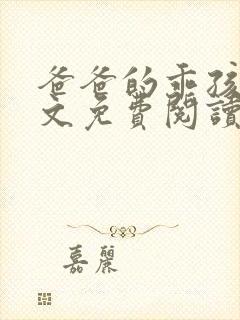 爸爸的乖孩
文免費閱讀
嘉麗